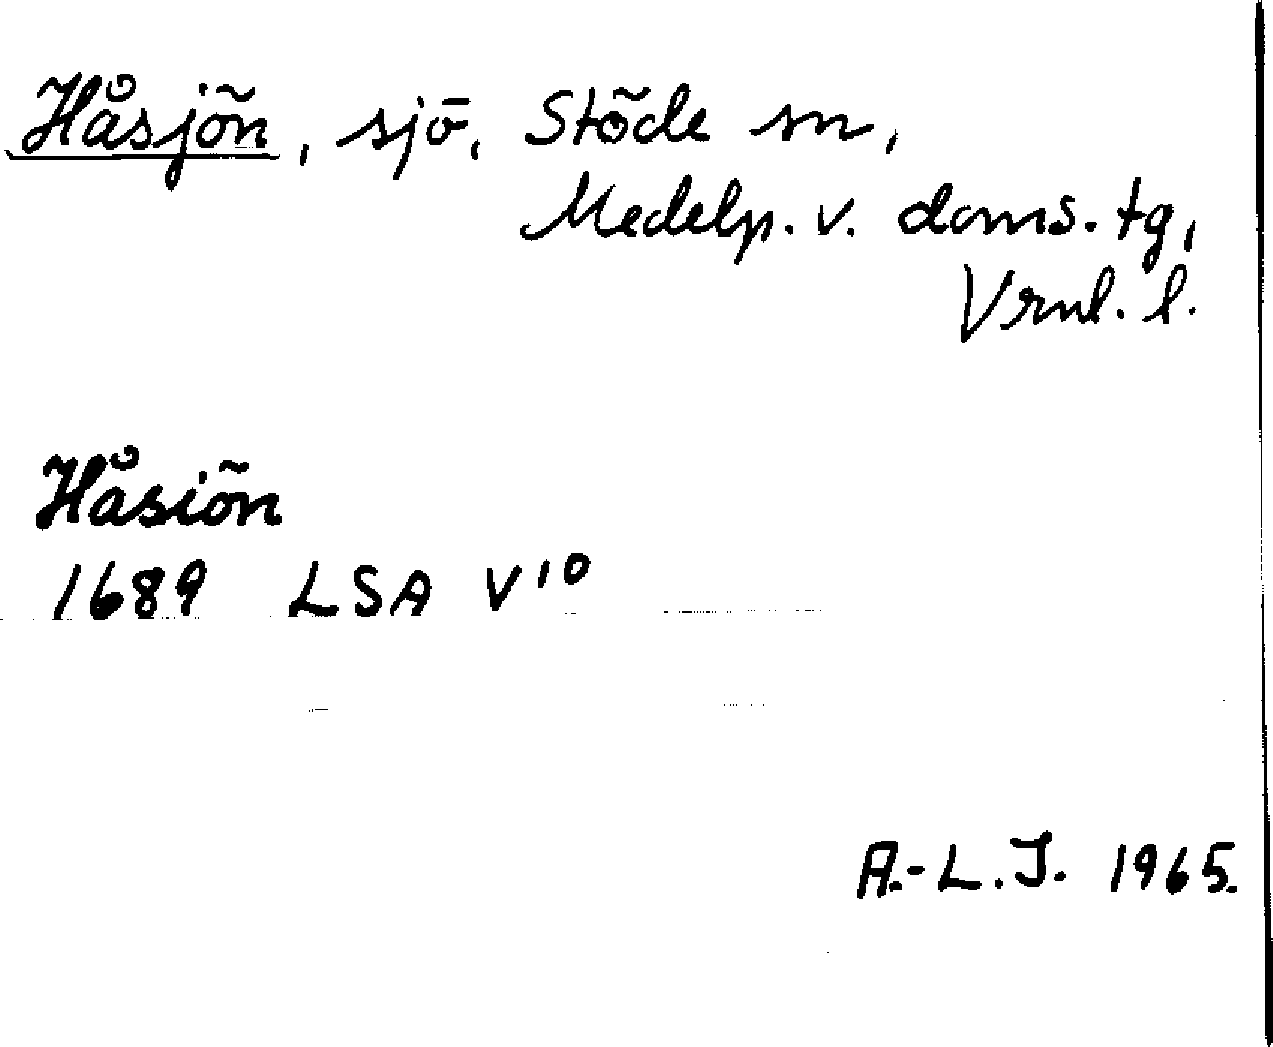 Håsjön, sjö, Stöde sn,
Medelp. v. doms. tg,
Vrnl. l.
Håsiön
1689 LSA V10
A.-L.J. 1965.